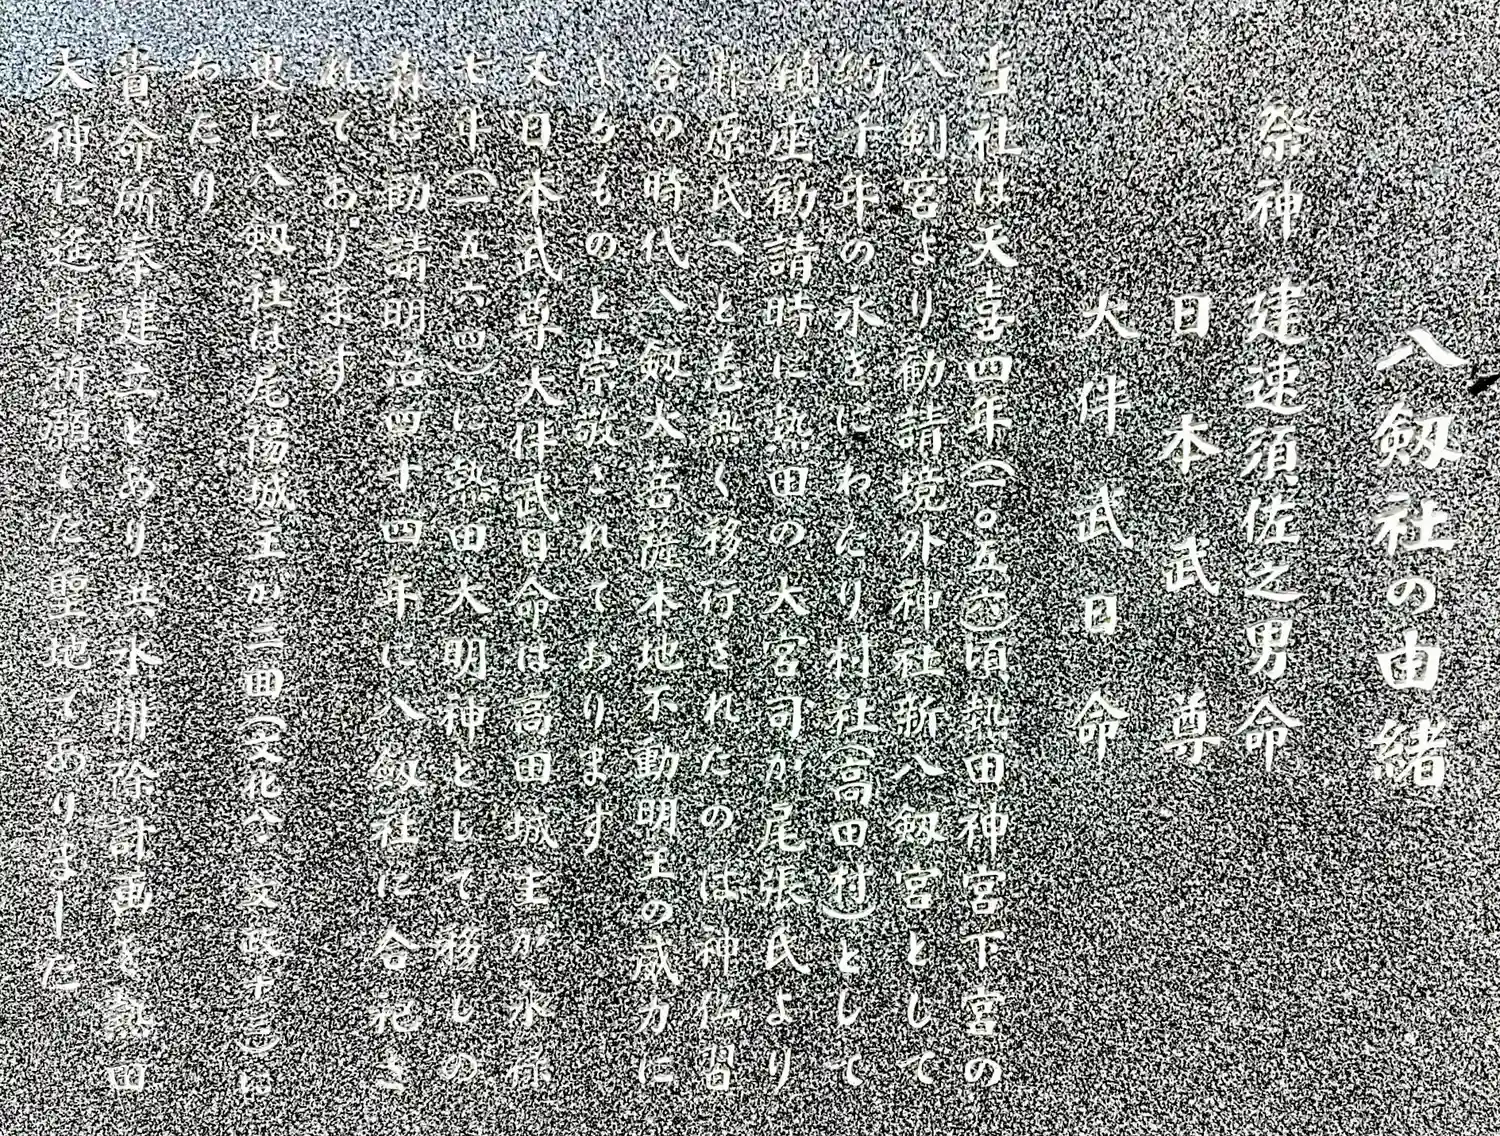 八劔社の由緒
祭神 建速須佐之男命
日本武尊
大伴武日命
当社は天喜四年(一〇五六)頃熱田神宮下宮の
八剣宮より勧請境外神社新八劔宮として
約千年の永きにわたり村社(高田村)として
鎮座勧請時に熱田の大宮司が尾張氏より
藤原氏へと恙無く移行されたのは神仏習
合の時代八劔大菩薩本地不動明王の威力に
よるものと崇敬されております
又日本武尊大伴武日命は高田城主が永禄
七年(一五六四)に熱田大明神として移しの
森に勧請明治四十四年に八劔社に合祀さ
れております
更に八劔社は尾陽城主が三回(文化八・文政十三)に
わたり
省命所奉建立とあり洪水排除計画を熱田
大神に遙拝祈願した聖地でありました